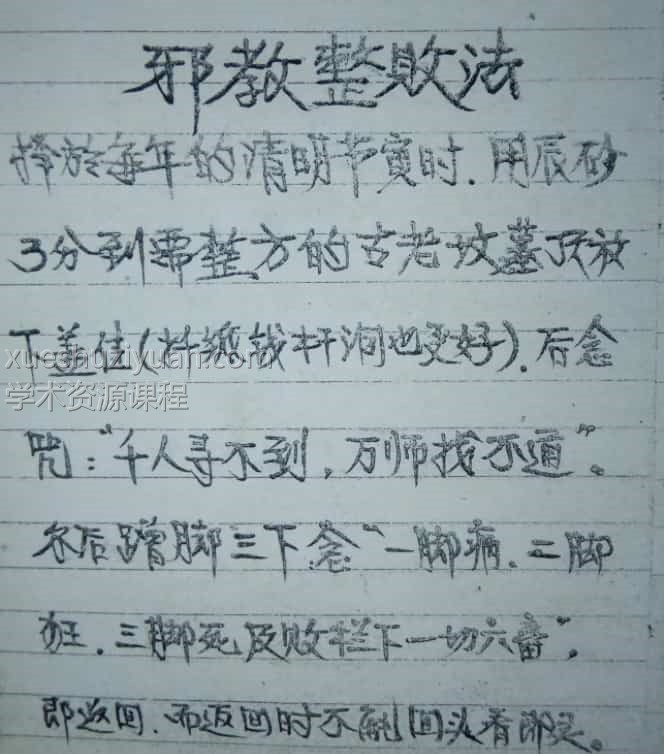 邪教整败法
择於每年的清明节寅时.用辰砂
3分到需整方的古老坟墓顶放
下盖住(挂纸钱杆洞也更好).后念
xueshuziyuan.com
学术资源课程
咒:"千人寻不到,万师找不道"。
尔后蹭脚三下念"一脚病.二脚
狂.三脚死及败栏下一切六畜",
即返回.而返回时不能回头看即